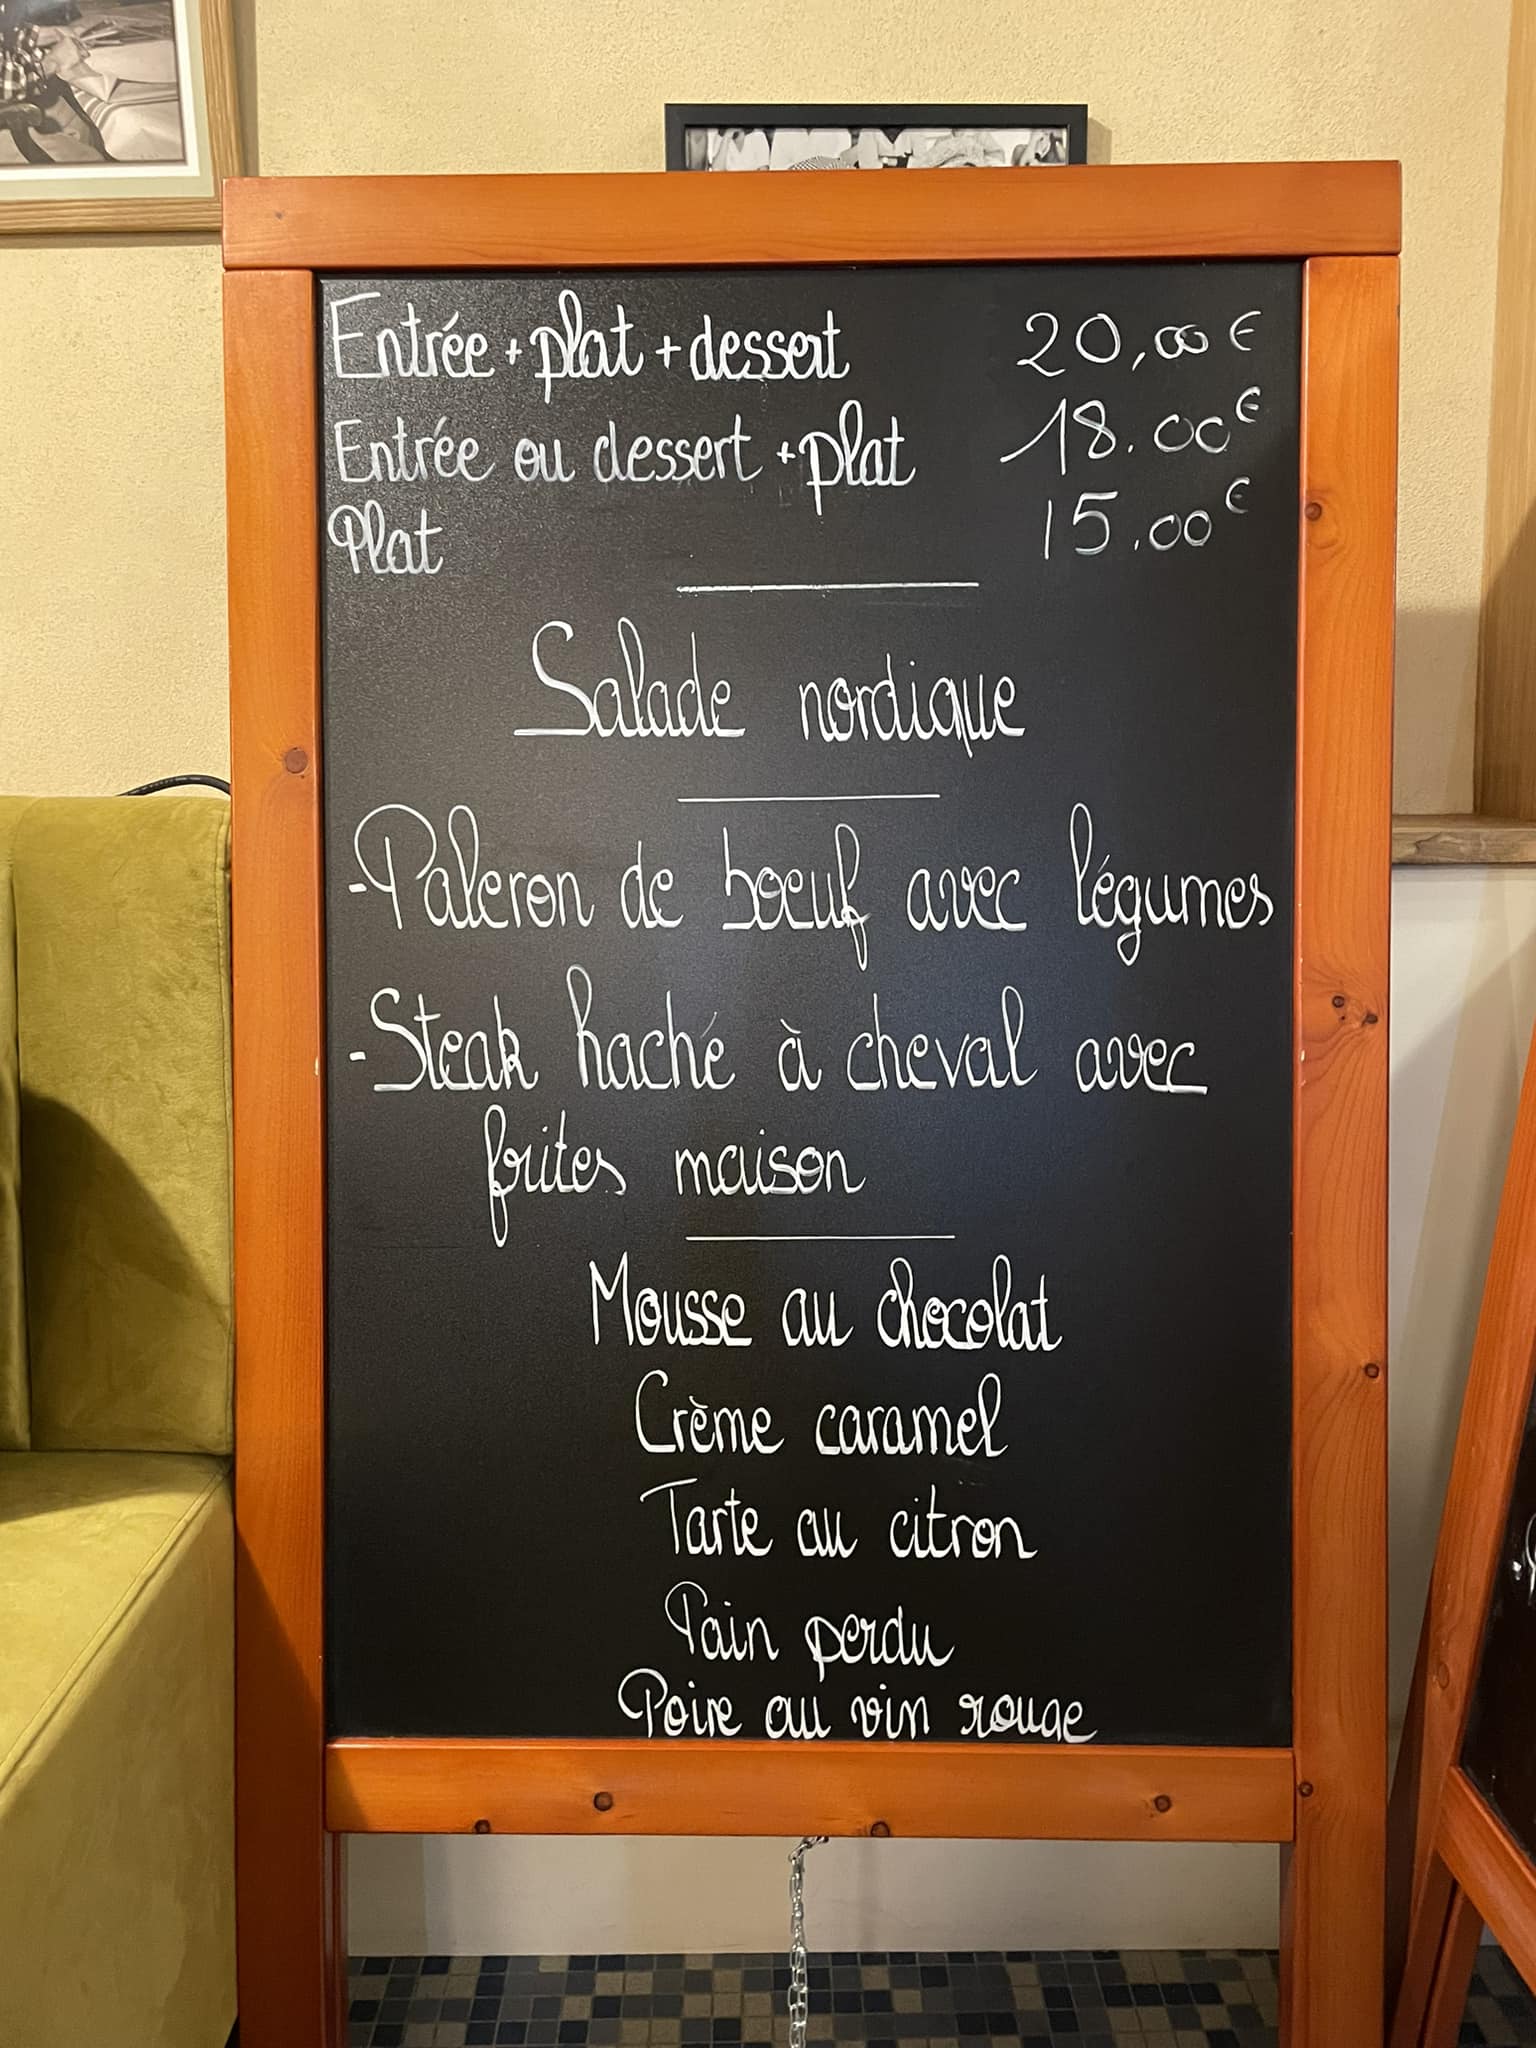 Entrée + plat + dessert 20,00 €
Entrée ou dessert + plat 18.00 €
Plat 15.00 €
Salade nordique
- Paleron de boeuf avec légumes
- Steak haché à cheval avec
frites maison
Mousse au chocolat
Crème caramel
Tarte au citron
Pain perdu
Poire au vin rouge